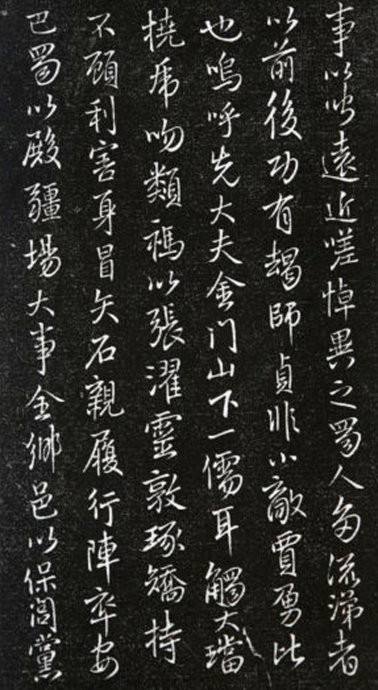 事以此遠近嗟悼異之蜀人多流涕者
以前後功有蝎師貞非小敵賈勇比
也嗚呼先大夫金门山下一儒耳觸大璫
撓虎吻類禍以張濯靈敦琢矯持
不顧利害身冒矢石親履行陣卒安
巴蜀以殿疆場大事全鄉邑以保閭黨